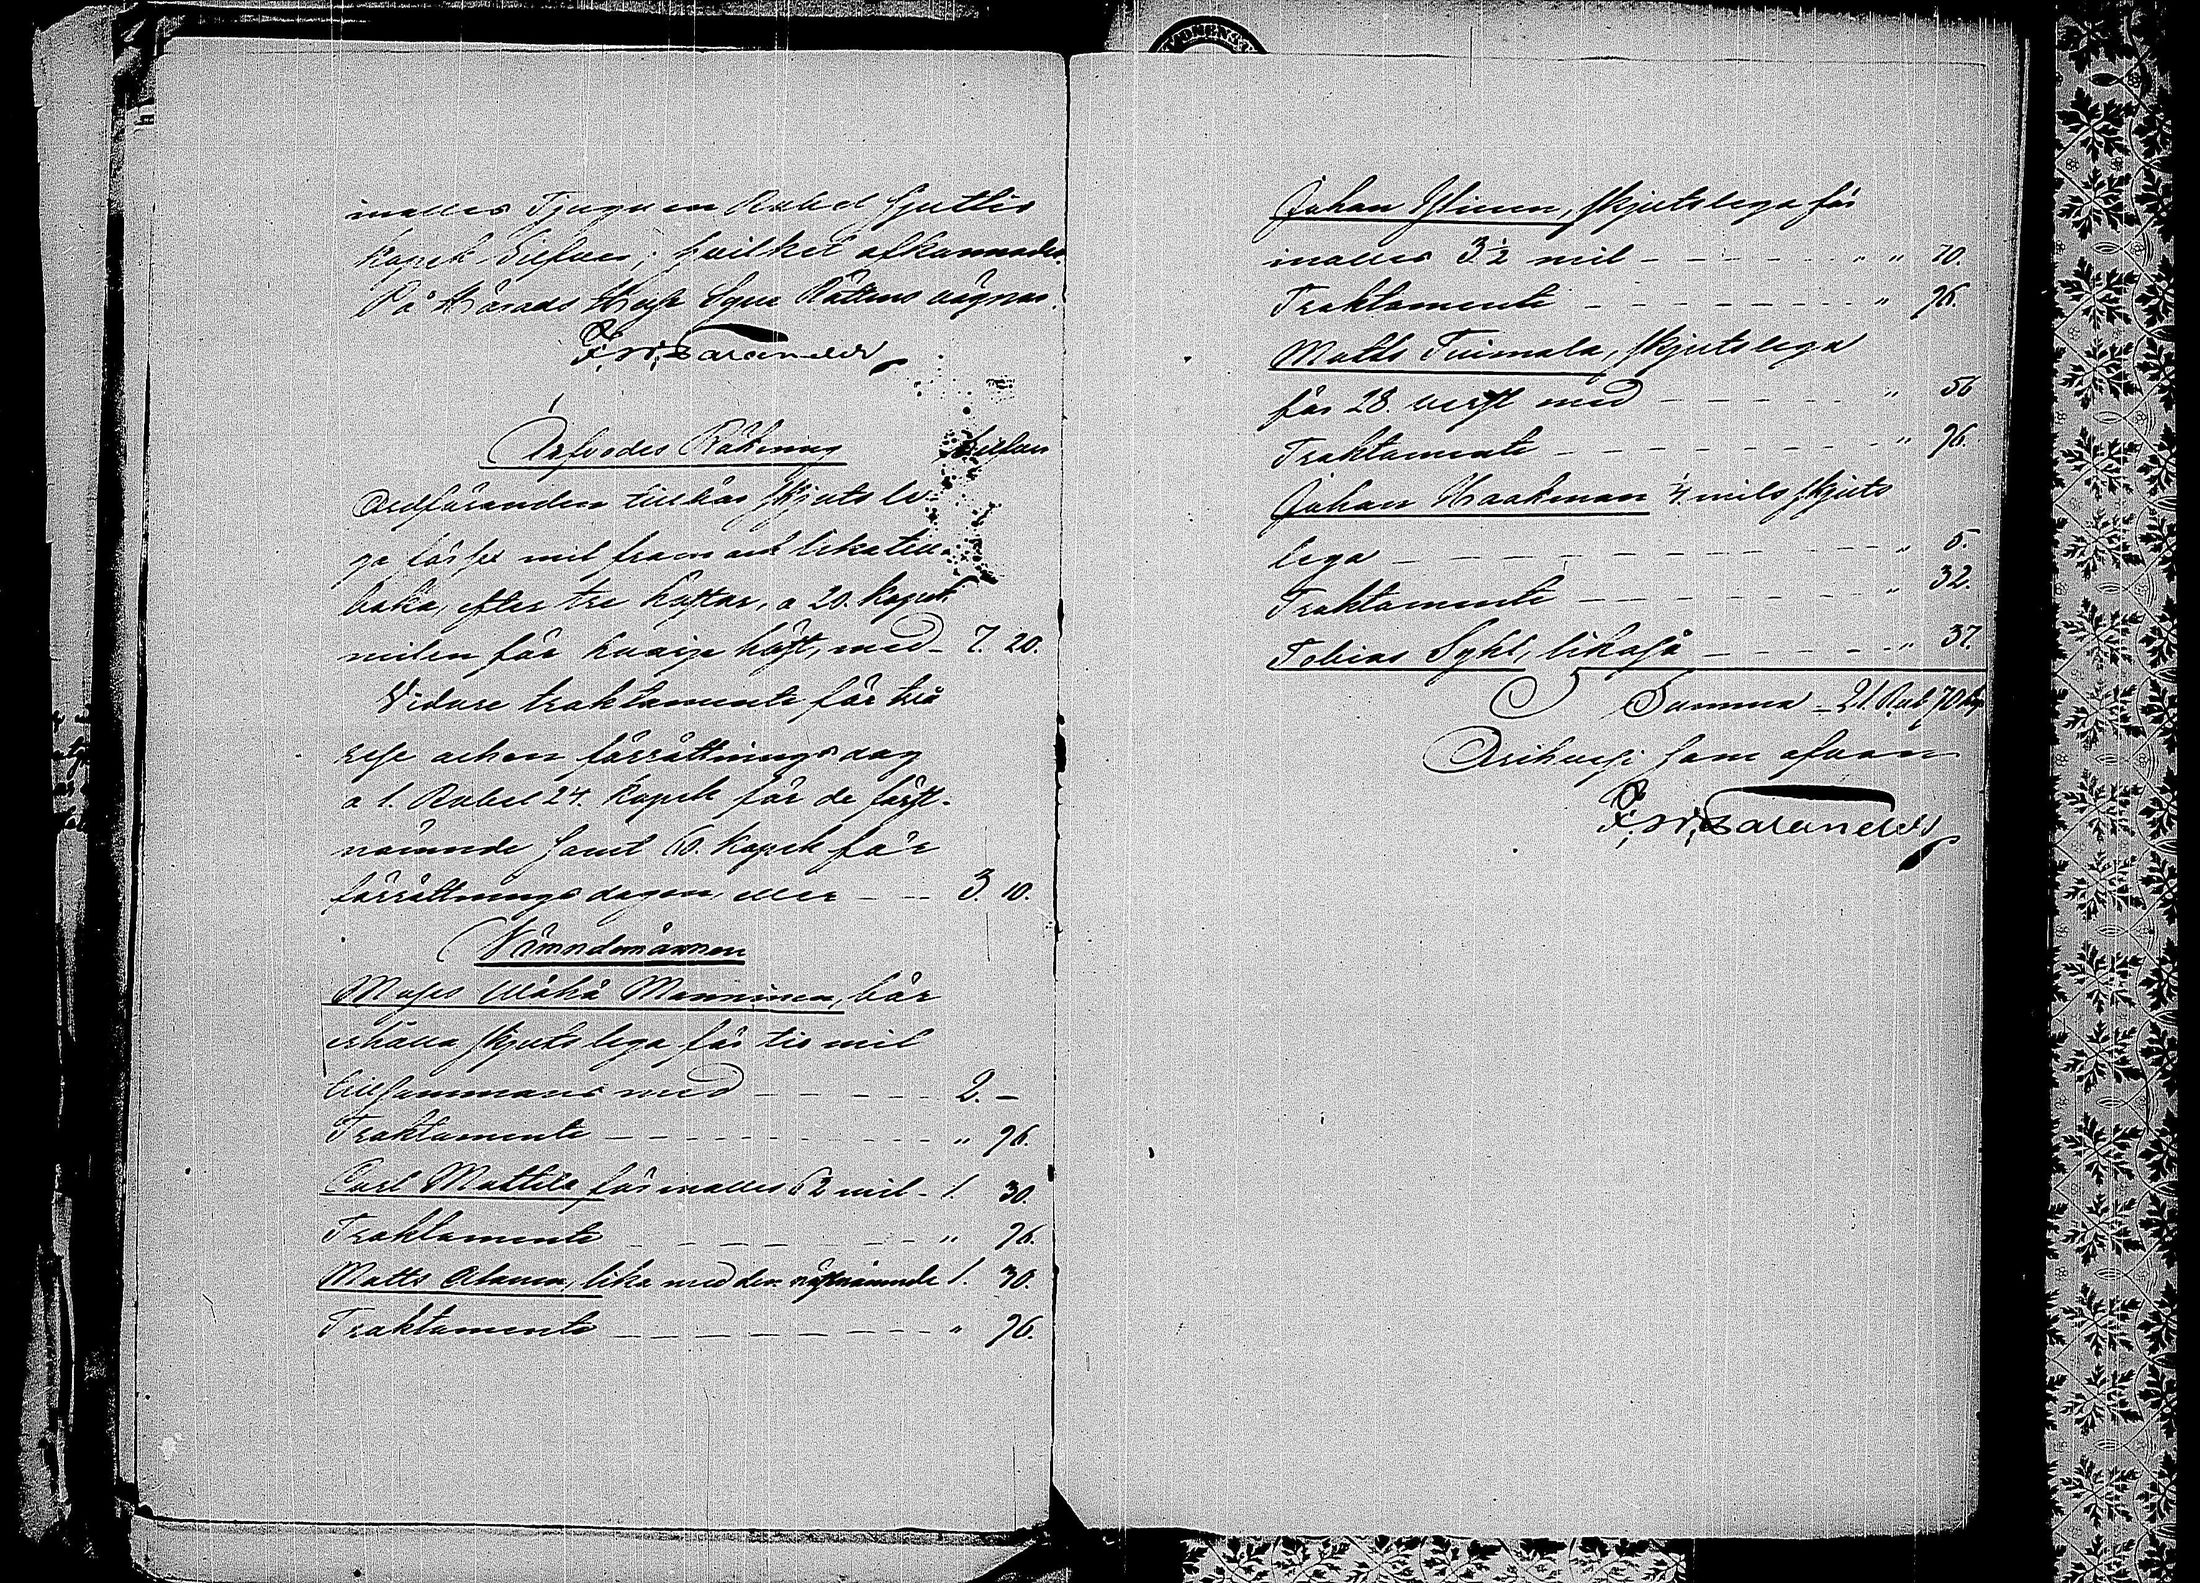 inalles Tjuguen Rubel Sjuttio
kopek Silfver; hvilket afkunnades.
På Härads Syne Rättens vägnar.
Arfvodes Räkning Silfver
Ordföranden tillkår skjutsle-
ga för sex mil fram och lika till-
baka, efter tre hästar, a 20. kopek
milen för hvarje häst, med 7. 20.
Vidare traktamente för två
rese och en förrättningsdag
a 1. Rubel 24. kopek för de först-
nämnde samt 60. kopek för
förrättningsdagen, eller - - - 3. 10.
Nämndemännen
Moses Manninen, bör
erhålla skjutslega för tio mil
tillsammans med - - - - - 2. -
Traktamente - - - - - - - - - " 96.
Carl Mattila för inalles 6½ mil - 1. 30.
Traktamente - - - - - - - - - " 96.
Matts lika med den näst nämnde 1. 30.
Traktamente - - - - - - - - - " 96.
Johan skjutslega för
inalles 3½ mil - - - - - - " " 70.
Traktamente - - - - - - - - " 96.
Matts Tuimala, skjutslega
för 28. verst med - - - - - " 56
Traktamente - - - - - - - - " 96.
Johan Haakman ¼ mils skjuts
lega - - - - - - - - - - " 5.
Traktamente - - - - - - - - " 32.
Tobias Sykt, likaså - - - - - " 37.
Summa - 21 Rub 70 kop
som ofvan